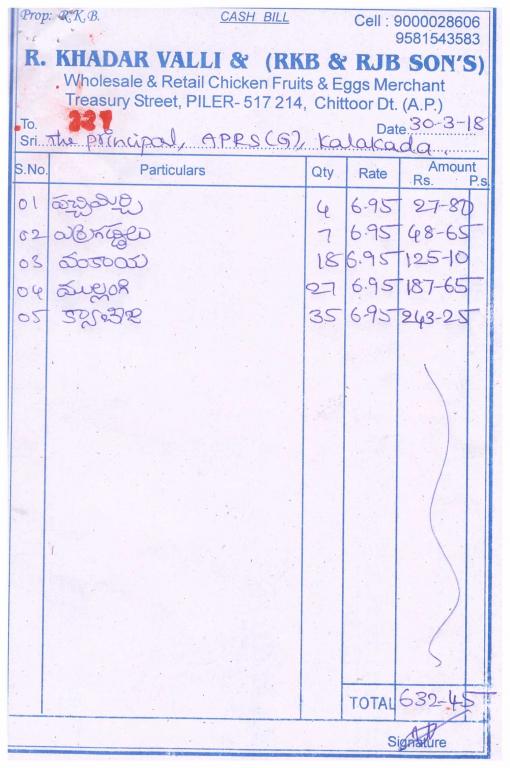 Prop: R.K.B. CASH BILL Cell : 9000028606
9581543583
R. KHADAR VALLI & (RKB & RJB SON'S)
Wholesale & Retail Chicken Fruits & Eggs Merchant
Treasury Street, PILER- 517 214, Chittoor Dt. (A.P.)
To. Date 30-3-18
Sri The principal, APRS(G), Kalakada
S.No. Particulars Qty Rate Amount Rs. P.s
01 పచ్చిమిర్చి 4 6.95 27-80
02 ఎర్రగడ్డలు 7 6.95 48-65
03 వంకాయ 18 6.95 125-10
04 ముల్లంగి 27 6.95 187-65
05 క్యాబేజి 35 6.95 243-25
TOTAL 632-45
Signature